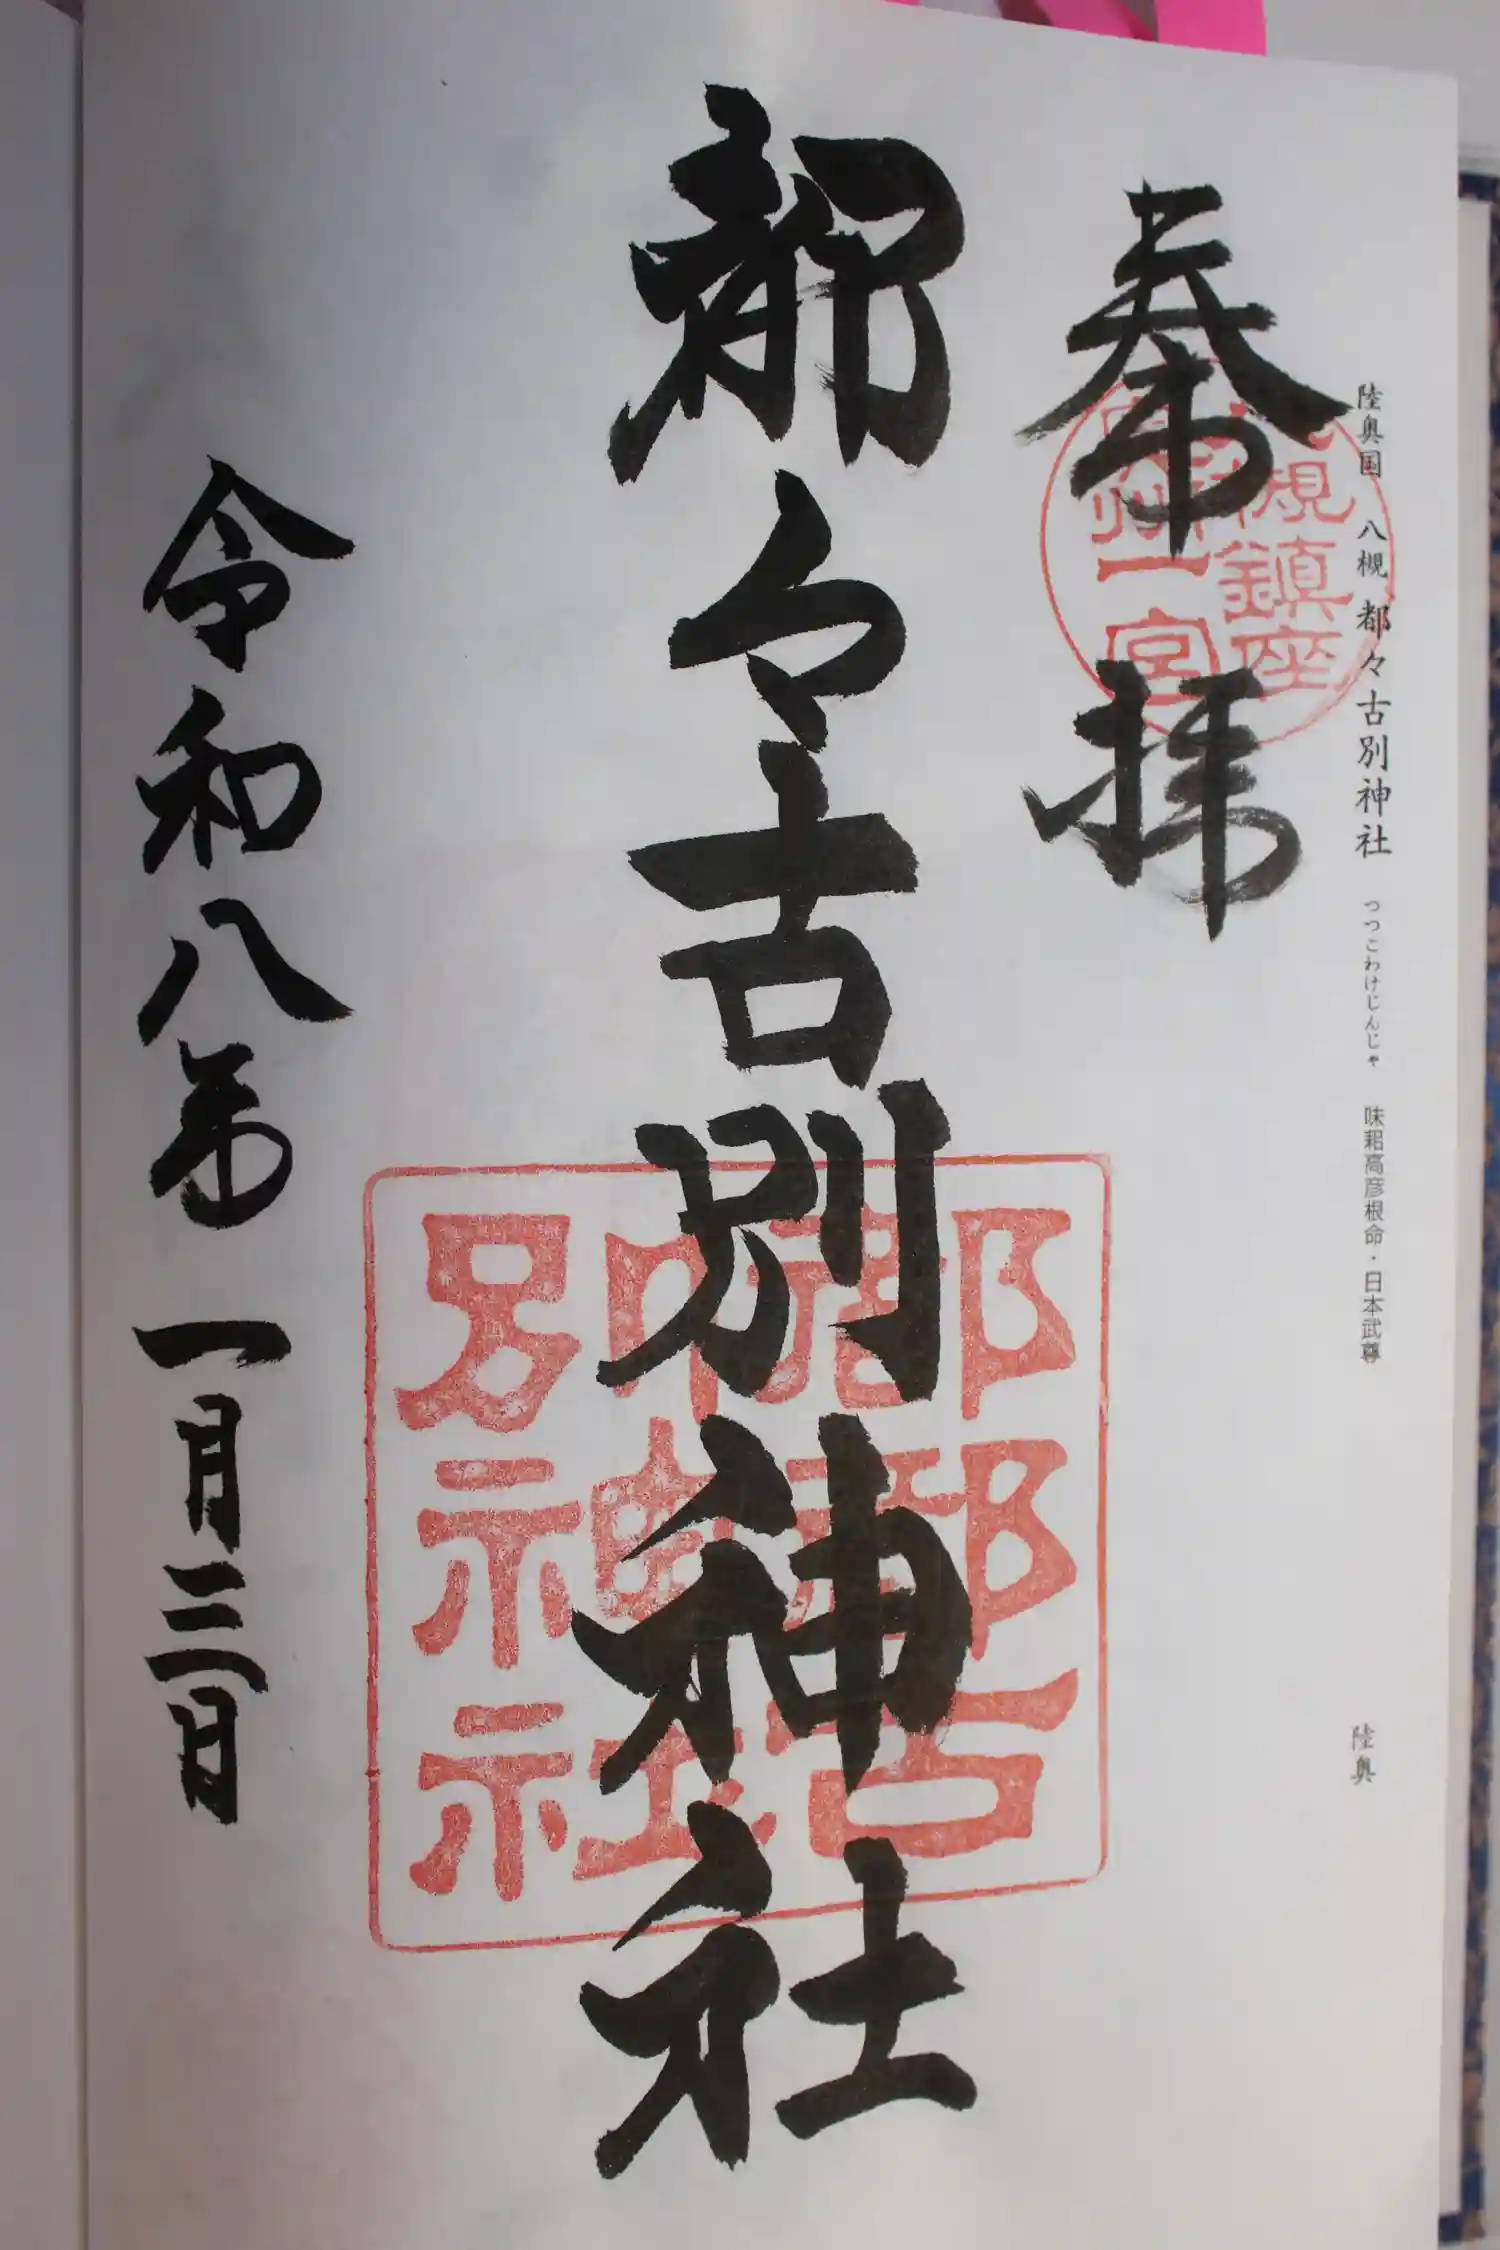 陸奥国 八槻 都々古別神社 つつこわけじんじゃ 味耜高彦根命・日本武尊
陸奥
奉拝
八槻鎮座
奥州一宮
都々古別神社
都都古
別神社
令和八年一月三日